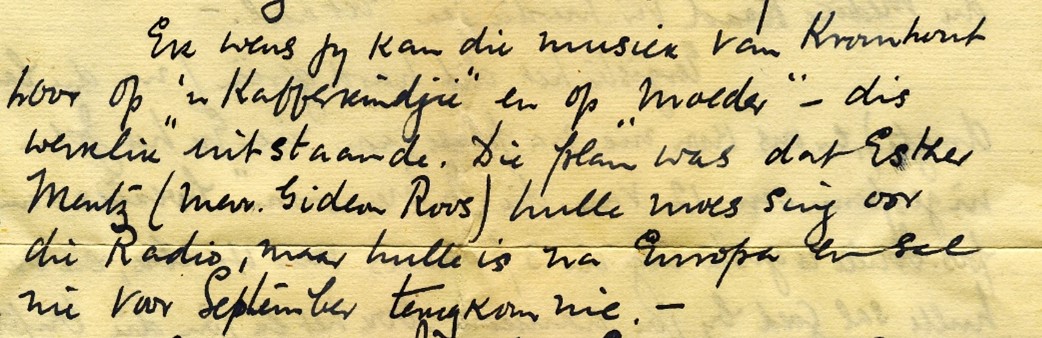 Ek wens jy kan die musiek van Kromhout
hoor op 'n Kafferkindjie" en op "Moeder" – dis
werklik uitstaande. Die "plan" was dat Esther
Mentz (Mevr. Gideon Roos) hulle moes sing oor
die Radio, maar hulle is na Europa en sal
nie voor September terugkom nie. –